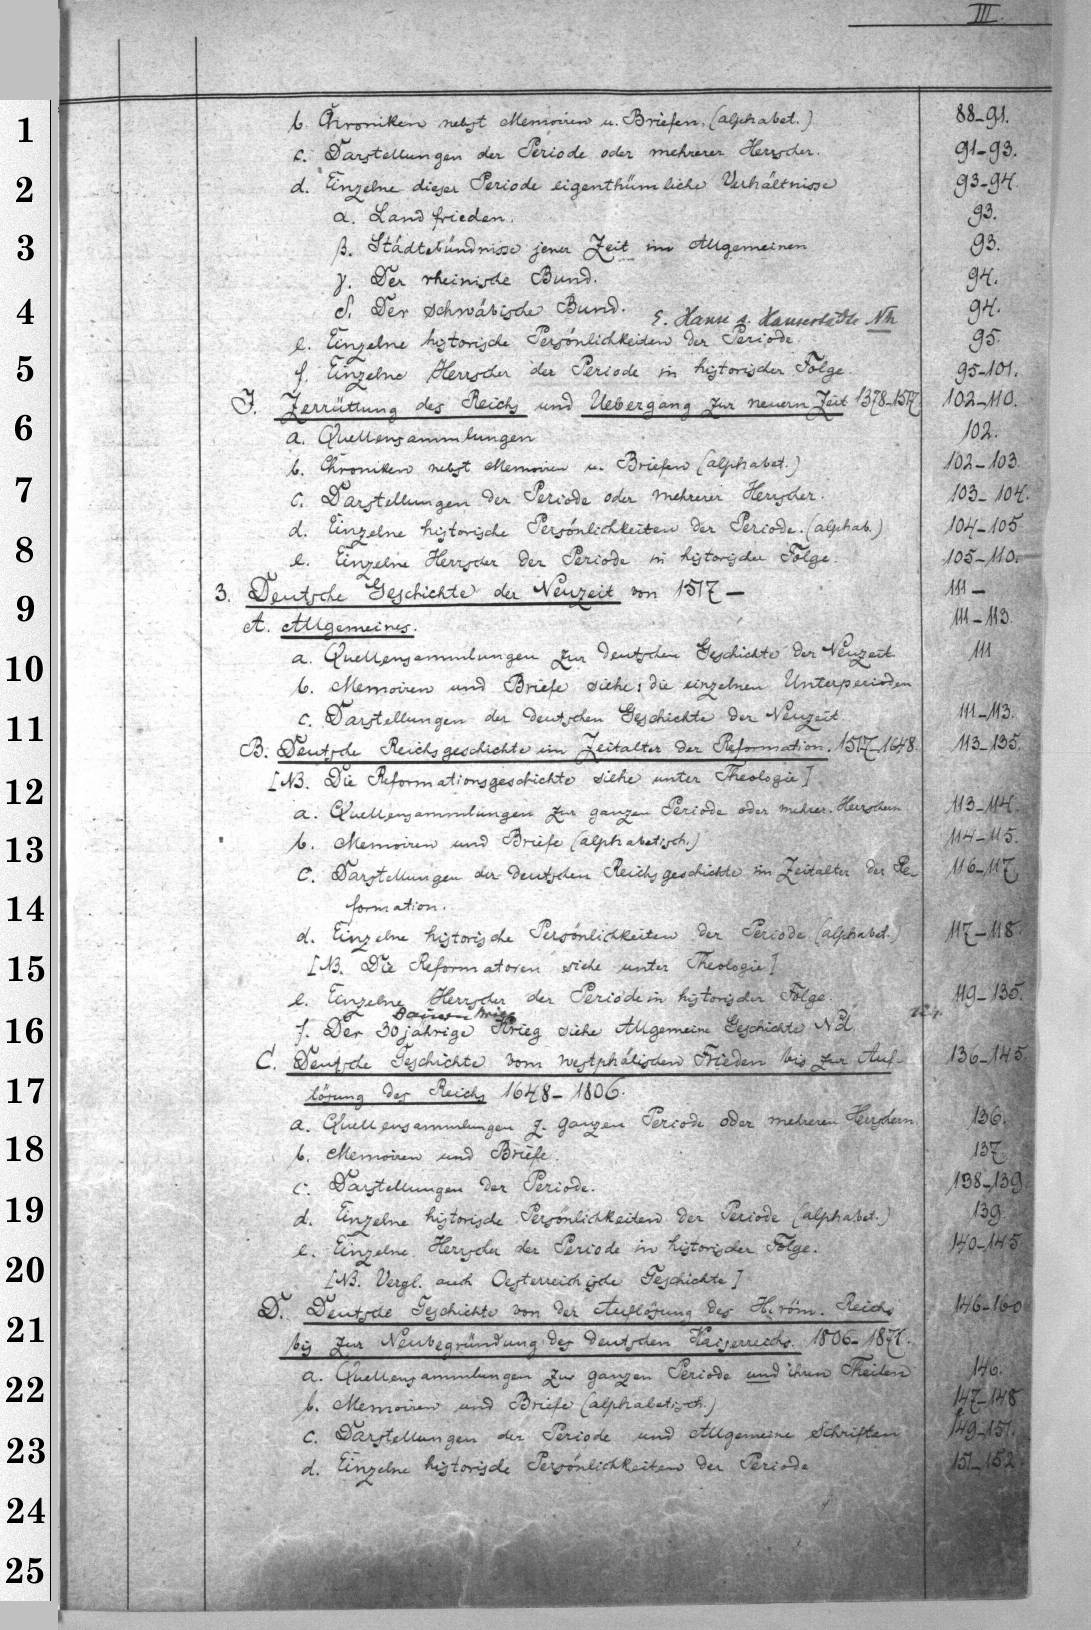 III.
1
b. Chroniken nebst Memoiren u. Briefen. (alphabet.) 88-91.
c. Darstellungen der Periode oder mehrerer Herrscher. 91-93.
2
d. Einzelne dieser Periode eigenthümliche Verhältnisse 93-94.
α. Landfrieden. 93.
3
β. Städtebündnisse jener Zeit im Allgemeinen 93.
γ. Der rheinische Bund. 94.
4
δ. Der schwäbische Bund. 94.
S. Hanse u. Hansestädte Nh
e. Einzelne historische Persönlichkeiten der Periode. 95.
5
f. Einzelne Herrscher der Periode in historischer Folge. 95-101.
J. Zerrüttung des Reichs und Uebergang zur neuern Zeit 1378-1517 102-110.
6
a. Quellensammlungen 102.
b. Chroniken nebst Memoiren u. Briefen (alphabet.) 102-103
7
c. Darstellungen der Periode oder mehrerer Herrscher. 103-104.
d. Einzelne historische Persönlichkeiten der Periode. (alphab.) 104-105
8
e. Einzelne Herrscher der Periode in historischer Folge. 105-110.
3. Deutsche Geschichte der Neuzeit von 1517 — 111 —
9
A. Allgemeines. 111-113.
a. Quellensammlungen zur deutschen Geschichte der Neuzeit 111
10
b. Memoiren und Briefe siehe: die einzelnen Unterperioden
c. Darstellungen der deutschen Geschichte der Neuzeit 111-113.
11
B. Deutsche Reichsgeschichte im Zeitalter der Reformation. 1517-1648. 113-135.
[NB. Die Reformationsgeschichte siehe unter Theologie]
12
a. Quellensammlungen zur ganzen Periode oder mehrer. Herrschern 113-114.
13
b. Memoiren und Briefe (alphabetisch.) 114-115.
c. Darstellungen der deutschen Reichsgeschichte im Zeitalter der Re- 116-117
14
formation.
d. Einzelne historische Persönlichkeiten der Periode (alphabet.) 117-118.
15
[NB. Die Reformatoren siehe unter Theologie]
e. Einzelne Herrscher der Periode in historischer Folge. 119-135.
Bauernkrieg 124.
16
f. Der 30jährige Krieg siehe Allgemeine Geschichte Nd.
C. Deutsche Geschichte vom westphälischen Frieden bis zur Auf- 136-145
17
lösung des Reichs 1648-1806.
a. Quellensammlungen z. ganzen Periode oder mehreren Herrschern. 136.
18
b. Memoiren und Briefe. 137
c. Darstellungen der Periode. 138-139
19
d. Einzelne historische Persönlichkeiten der Periode (alphabet.) 139
e. Einzelne Herrscher der Periode in historischer Folge. 140-145
20
[NB. Vergl. auch Oesterreichische Geschichte]
D. Deutsche Geschichte von der Auflösung des H. röm. Reichs 146-160
21
bis zur Neubegründung des deutschen Kaiserreichs. 1806-1871.
a. Quellensammlungen zur ganzen Periode und ihren Theilen 146.
22
b. Memoiren und Briefe (alphabetisch.) 147-148
c. Darstellungen der Periode und Allgemeine Schriften 149-151.
23
d. Einzelne historische Persönlichkeiten der Periode 151-152.
24
25